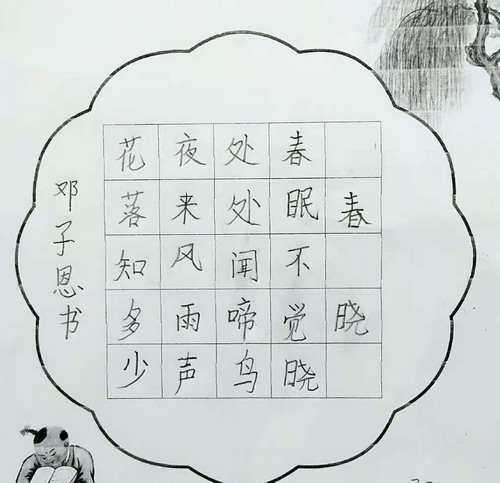 春晓
春眠不觉晓
处处闻啼鸟
夜来风雨声
花落知多少
邓子恩书